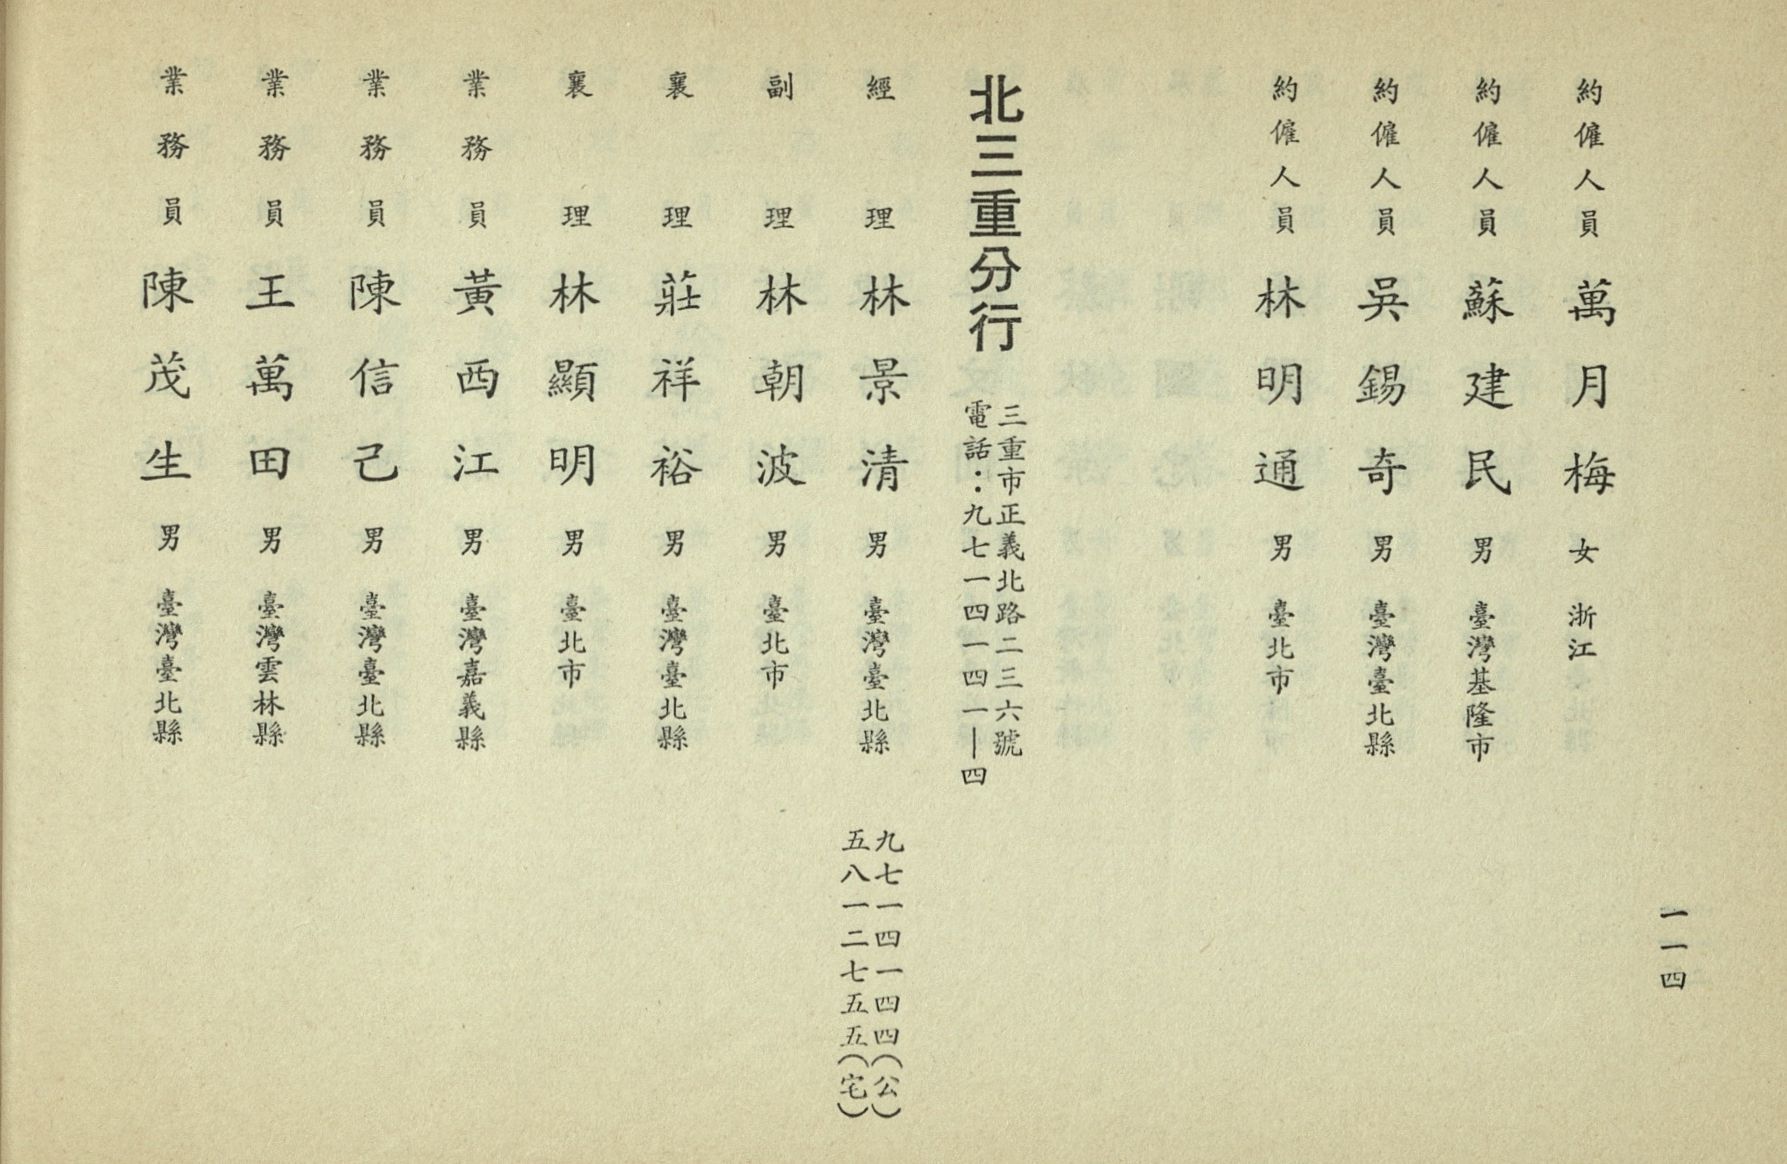 一一四
約僱人員 萬月梅 女 浙江
約僱人員 蘇建民 男 臺灣基隆市
約僱人員 吳錫奇 男 臺灣臺北縣
約僱人員 林明通 男 臺北市
北三重分行
三重市正義北路二三六號
電話：九七一四一四一｜四
經理 林景清 男 臺灣臺北縣
九七一四一四四（公）
五八一二七五五（宅）
副理 林朝波 男 臺北市
襄理 莊祥裕 男 臺灣臺北縣
襄理 林顯明 男 臺北市
業務員 黃西江 男 臺灣嘉義縣
業務員 陳信己 男 臺灣臺北縣
業務員 王萬田 男 臺灣雲林縣
業務員 陳茂生 男 臺灣臺北縣